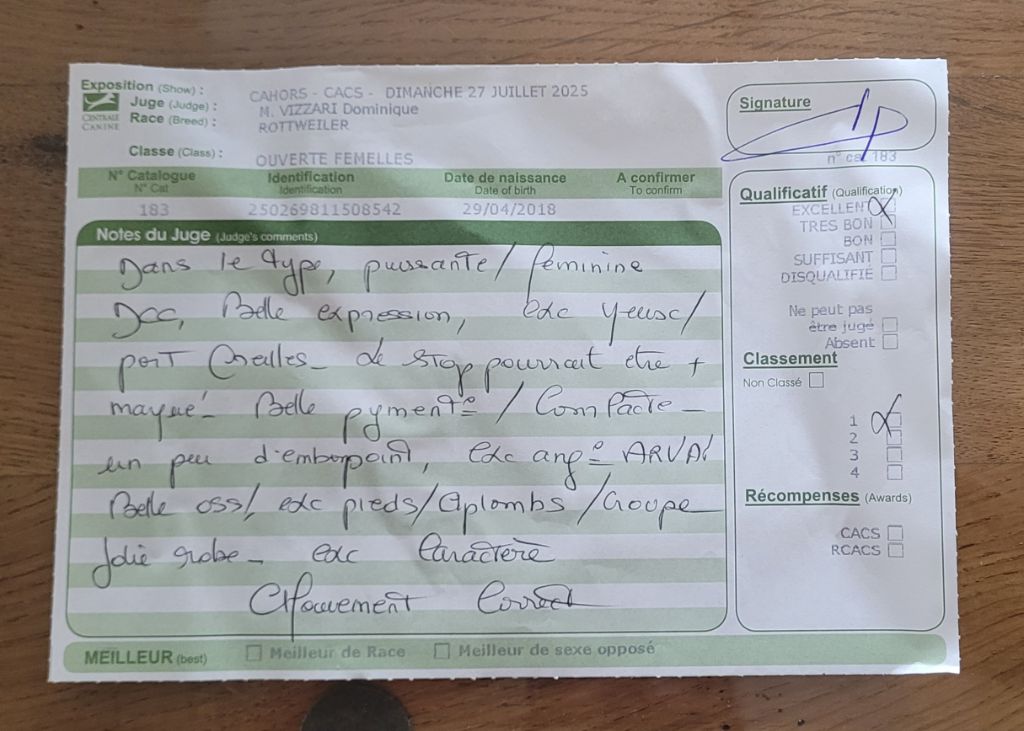 Exposition (Show) : CAHORS - CACS - DIMANCHE 27 JUILLET 2025
CENTRALE CANINE
Juge (Judge) : M. VIZZARI Dominique
Race (Breed) : ROTTWEILER
Classe (Class) : OUVERTE FEMELLES
Signature
n° cat 183
N° Catalogue Identification Date de naissance A confirmer
N° Cat Identification Date of birth To confirm
183 250269811508542 29/04/2018
Notes du Juge (Judge's comments)
Dans le type, puissante / féminine
Dcc, Belle expression, exc yeux /
port Oreilles - le stop pourrait etre +
marqué - Belle pigmentº / Compacte -
un peu d'embonpoint, exc angº ARVA!
Belle oss!, exc pieds / Aplombs / Croupe
Jolie robe - exc Caractère
Mouvement Correct
Qualificatif (Qualification)
EXCELLENT
TRES BON
BON
SUFFISANT
DISQUALIFIÉ
Ne peut pas
être jugé
Absent
Classement
Non Classé
1
2
3
4
Récompenses (Awards)
CACS
RCACS
MEILLEUR (best) Meilleur de Race Meilleur de sexe opposé